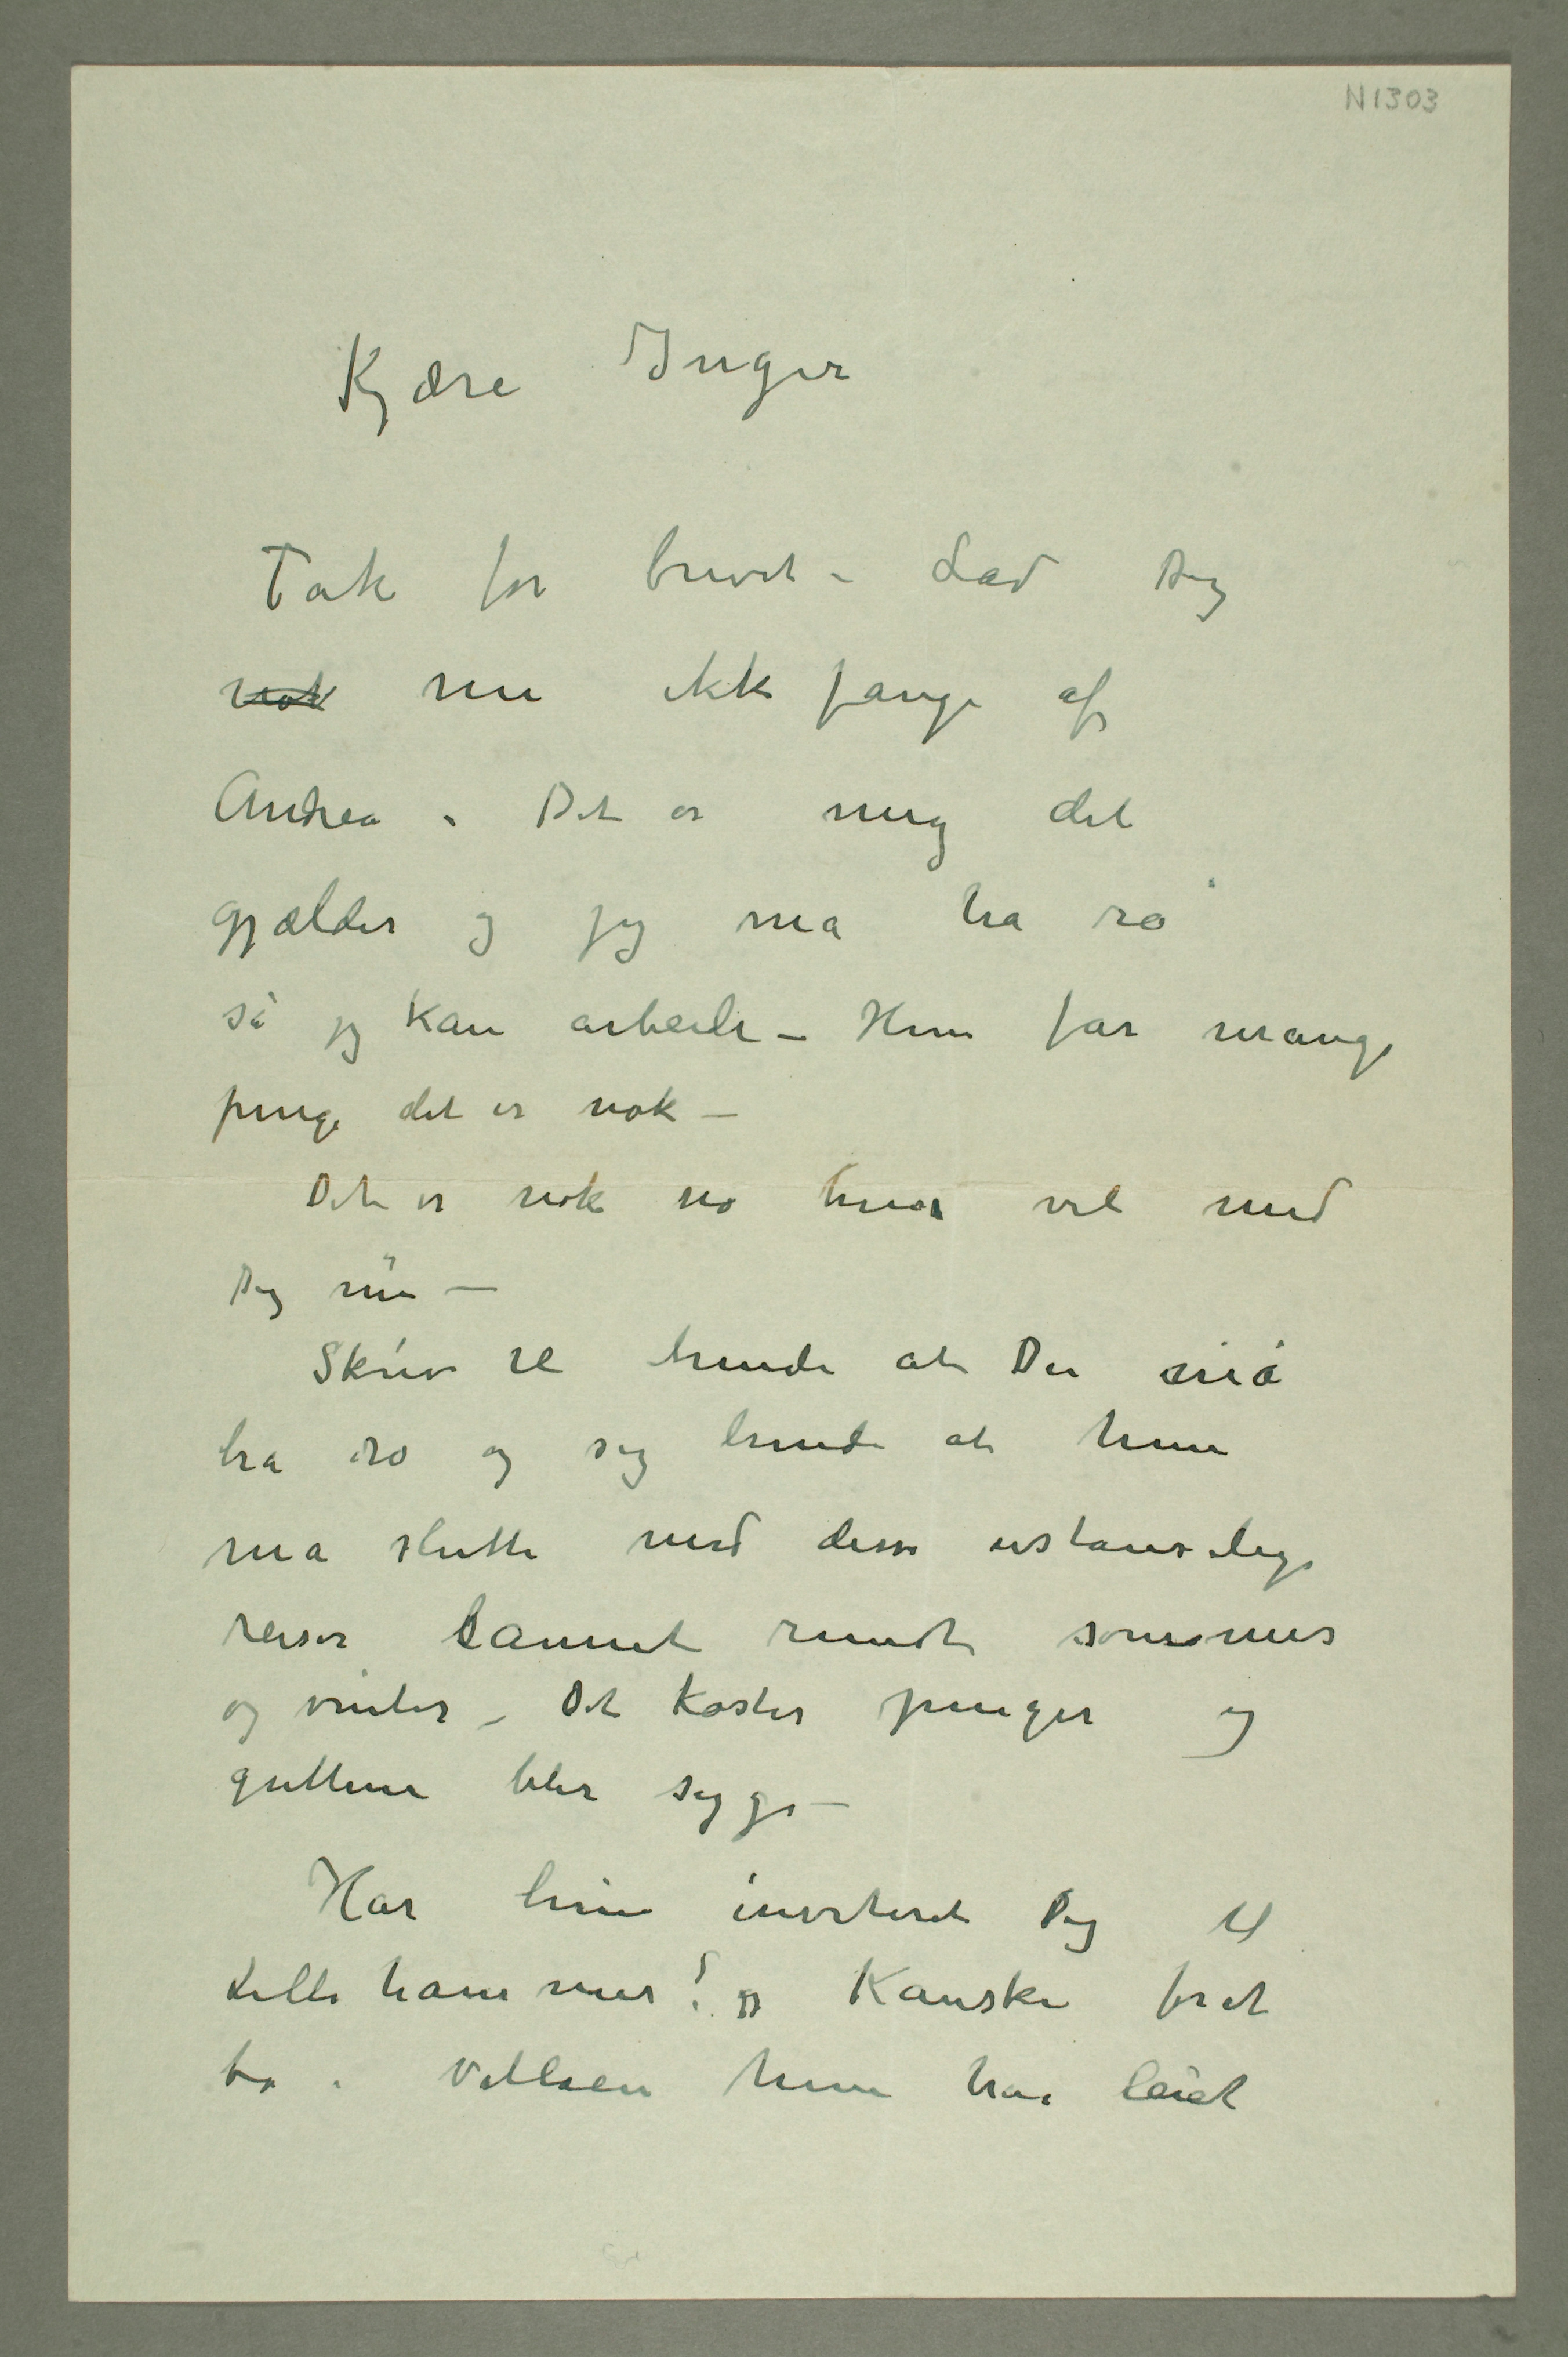 N1303
Kjære Inger
Tak for brevet – Lad Dig
nok nu ikke fange af
Andrea – Det er mig det
gjælder og jeg må ha ro
så jeg kan arbeide – Hun får mange
penge det er nok –
Det er nok no hun vil med
Dig nu –
Skriv til hende at Du må
ha ro og sig hende at hun
må slutte med disse ustanselige
reiser lannet rundt sommer
og vinter – Det koster penger og
guttene blir syge –
Har hun inviteret Dig til
Lillehammer? Kanske for at
bo i villaen hun har leiet